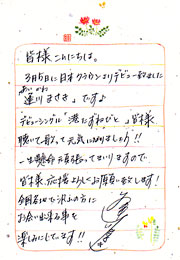 皆様こんにちは。
3月5日に日本クラウンよりデビュー致しました
あいかわ
逢川まさき」ですよ
デビューシングル「港たずねびと」皆様
聴いて頂って元気になりましょう!!
一生懸命頑張ってまいりますので
皆様、応援よろしくお願い致します!
全国各地で沢山の方に
お会い出来る事を
楽しみにしています!!